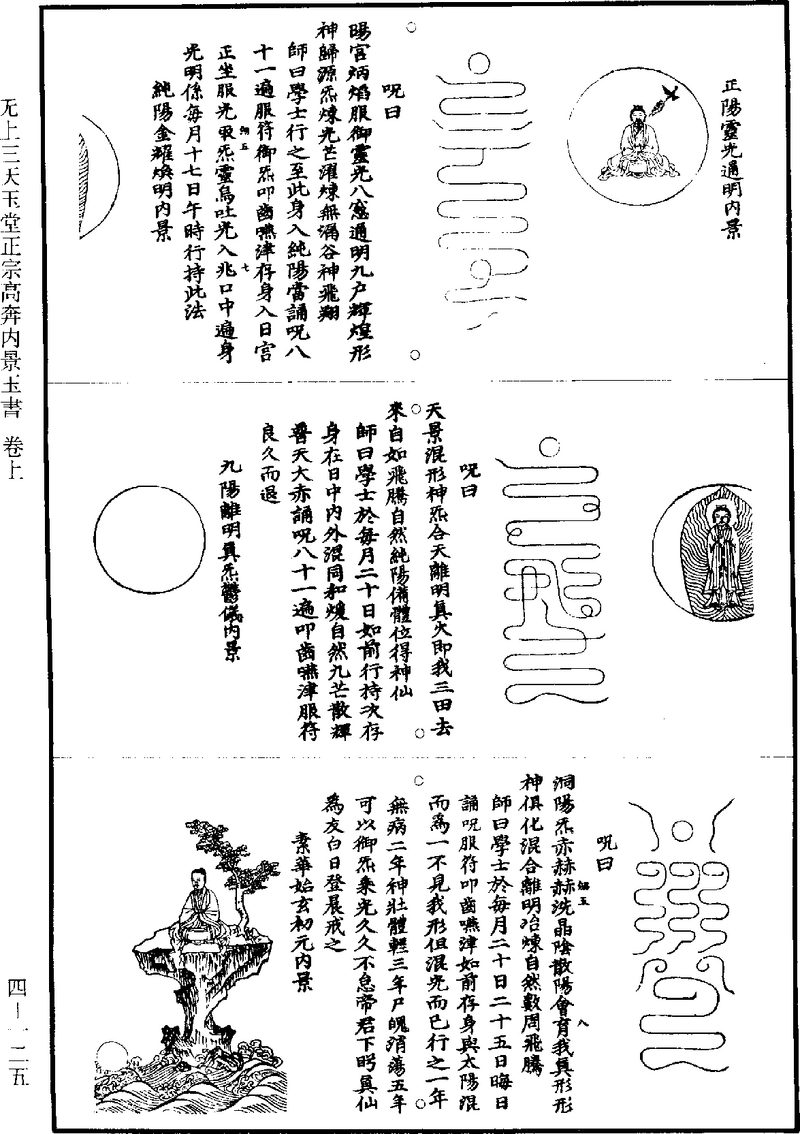 正陽靈光通明內景
呪曰
暘宮炳焰服御靈光八窻通明九戶輝煌形
神歸源炁煉光芒濯煉無漏谷神飛翔
師曰學士行之至此身入純陽當誦呪八
十一遍服符御炁叩齒嚥津存身入日宮
正坐服光取炁靈烏吐光入兆口中遍身
光明係每月十七日午時行持此法
純陽金耀煥明內景
呪曰
天景混形神炁合天離明真火即我三田去
來自如飛騰自然純陽備體位得神仙
師曰學士於每月二十日如前行持次存
身在日中內外混同和煖自然九芒散輝
普天大赤誦呪八十一遍叩齒嚥津服符
良久而退
九陽離明真炁鬱儀內景
呪曰
洞陽炁赤赫赫洗晶陰散陽會育我真形形
神俱化混合離明冶煉自然數周飛騰
師曰學士於每月二十日二十五日晦日
誦呪服符叩齒嚥津如前存身與太陽混
而為一不見我形但混光而已行之一年
無病二年神壯體輕三年尸魄消蕩五年
可以御炁乘光久久不息帝君下眄真仙
為友白日登晨戒之
素華始玄初元內景
炳五
七
炳五
八
无上三天玉堂正宗高奔內景玉書 卷上
四—一二五